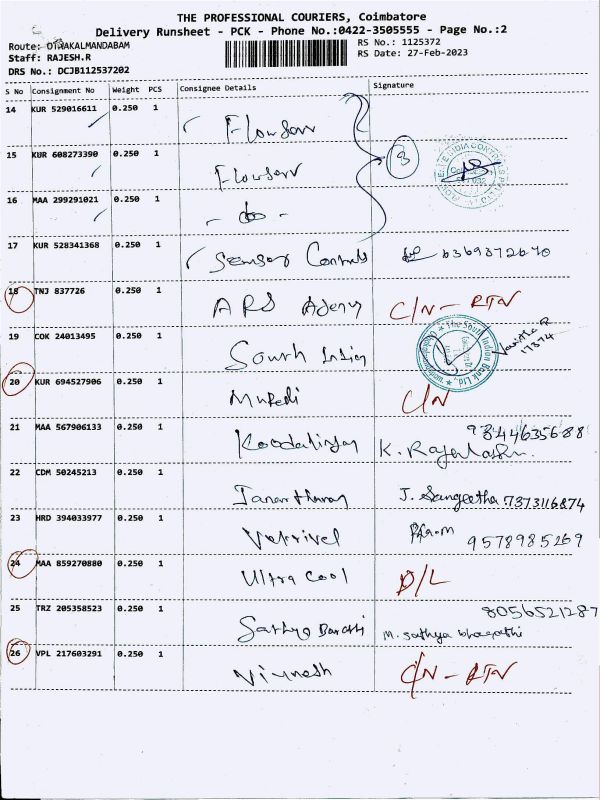 THE PROFESSIONAL COURIERS, Coimbatore
Delivery Runsheet - PCK - Phone No.:0422-3505555 - Page No.:2
Route: OTHAKALMANDABAM
RS No.: 1125372
Staff: RAJESH.R
RS Date: 27-Feb-2023
DRS No.: DCJB112537202
S No Consignment No Weight PCS Consignee Details Signature
14 KUR 529016611 0.250 1 Flowserv
15 KUR 608273390 0.250 1 Flowserv
3
16 MAA 299291021 0.250 1 - do -
17 KUR 528341368 0.250 1 Sensor Controls 6369872670
18 TNJ 837726 0.250 1 ARS Agency C/N - RTN
19 COK 24013495 0.250 1 South Indian
The South Indian Bank Ltd.
17374
20 KUR 694527906 0.250 1 Murali C/N
21 MAA 567906133 0.250 1 9344635688
22 CDM 50245213 0.250 1 J. Sangeetha 7373116874
23 HRD 394033977 0.250 1 Vetrivel 9578985269
24 MAA 859270880 0.250 1 Ultra Cool D/L
25 TRZ 205358523 0.250 1 Sathya Barathi 8056521287
M. sathya bharathi
26 VPL 217603291 0.250 1 Vignesh C/N - RTN